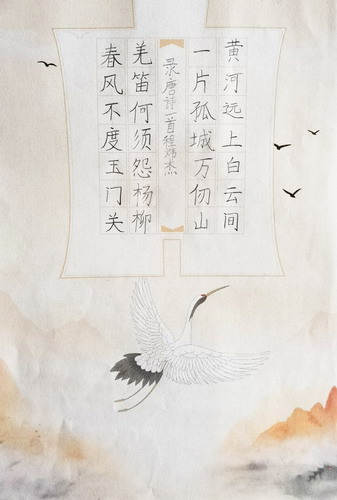 黄河远上白云间
一片孤城万仞山
录唐诗一首程杰
羌笛何须怨杨柳
春风不度玉门关